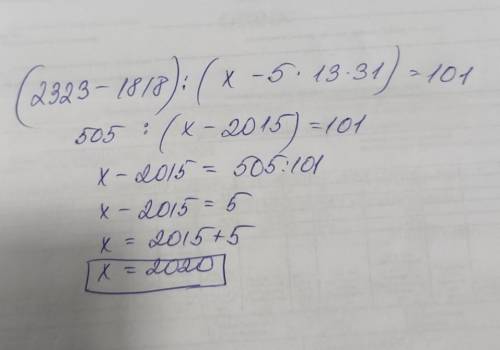 (2323-1818):(x-5·13·31)=101
505 :(x-2015)=101
x-2015 = 505:101
x-2015 = 5
x = 2015+5
x = 2020